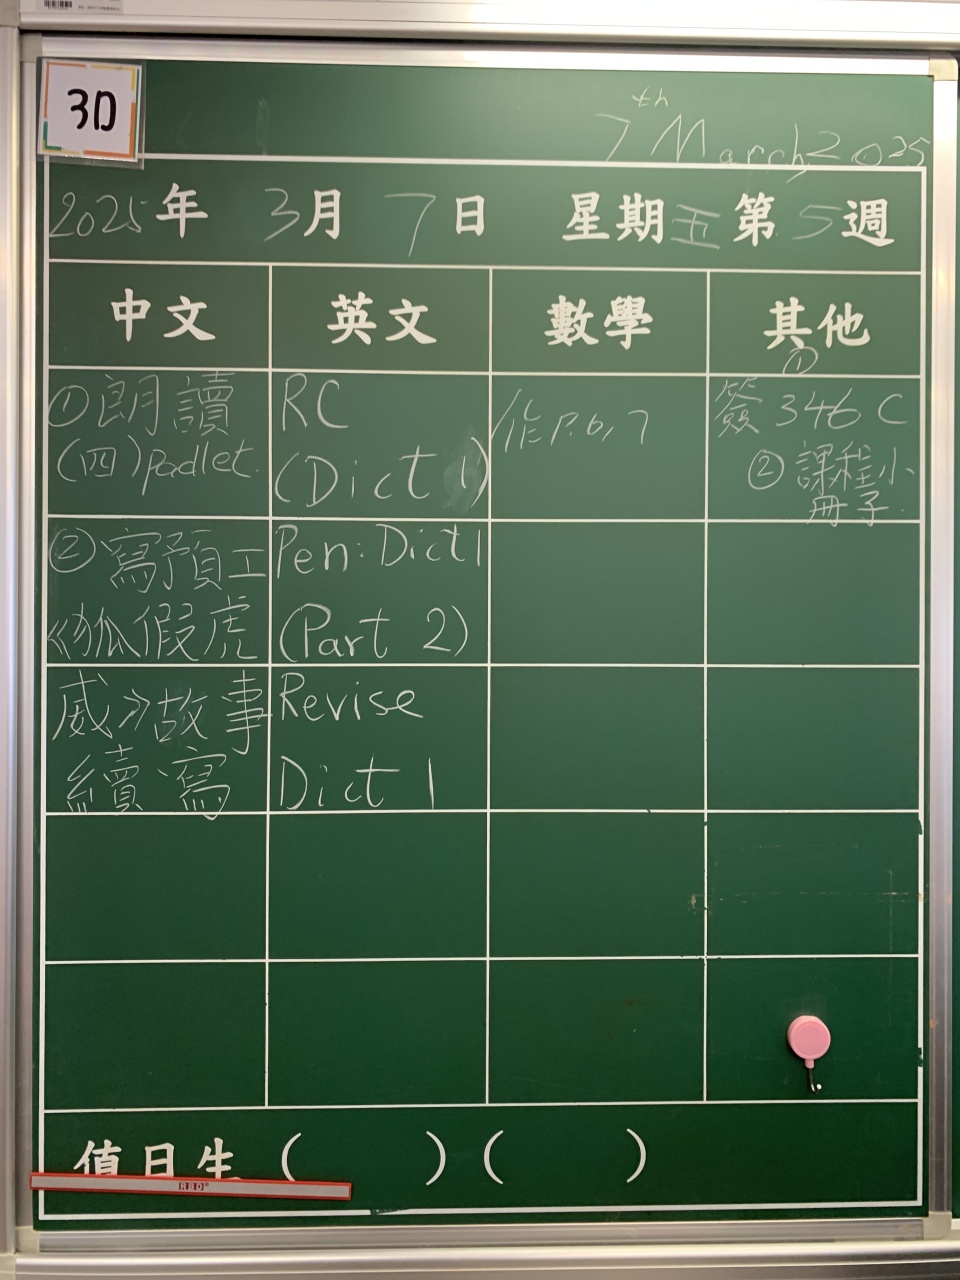 3D
7th March, 2025
2025年 3月 7日 星期五 第5週
中文 英文 數學 其他
①朗讀
(四)padlet.
②寫預工
《狐假虎
威》故事
續寫
RC
(Dict 1)
Pen: Dict 1
(Part 2)
Revise
Dict 1
作P.6,7
①
簽346C
②課程小
冊子.
值日生 ( ) ( )